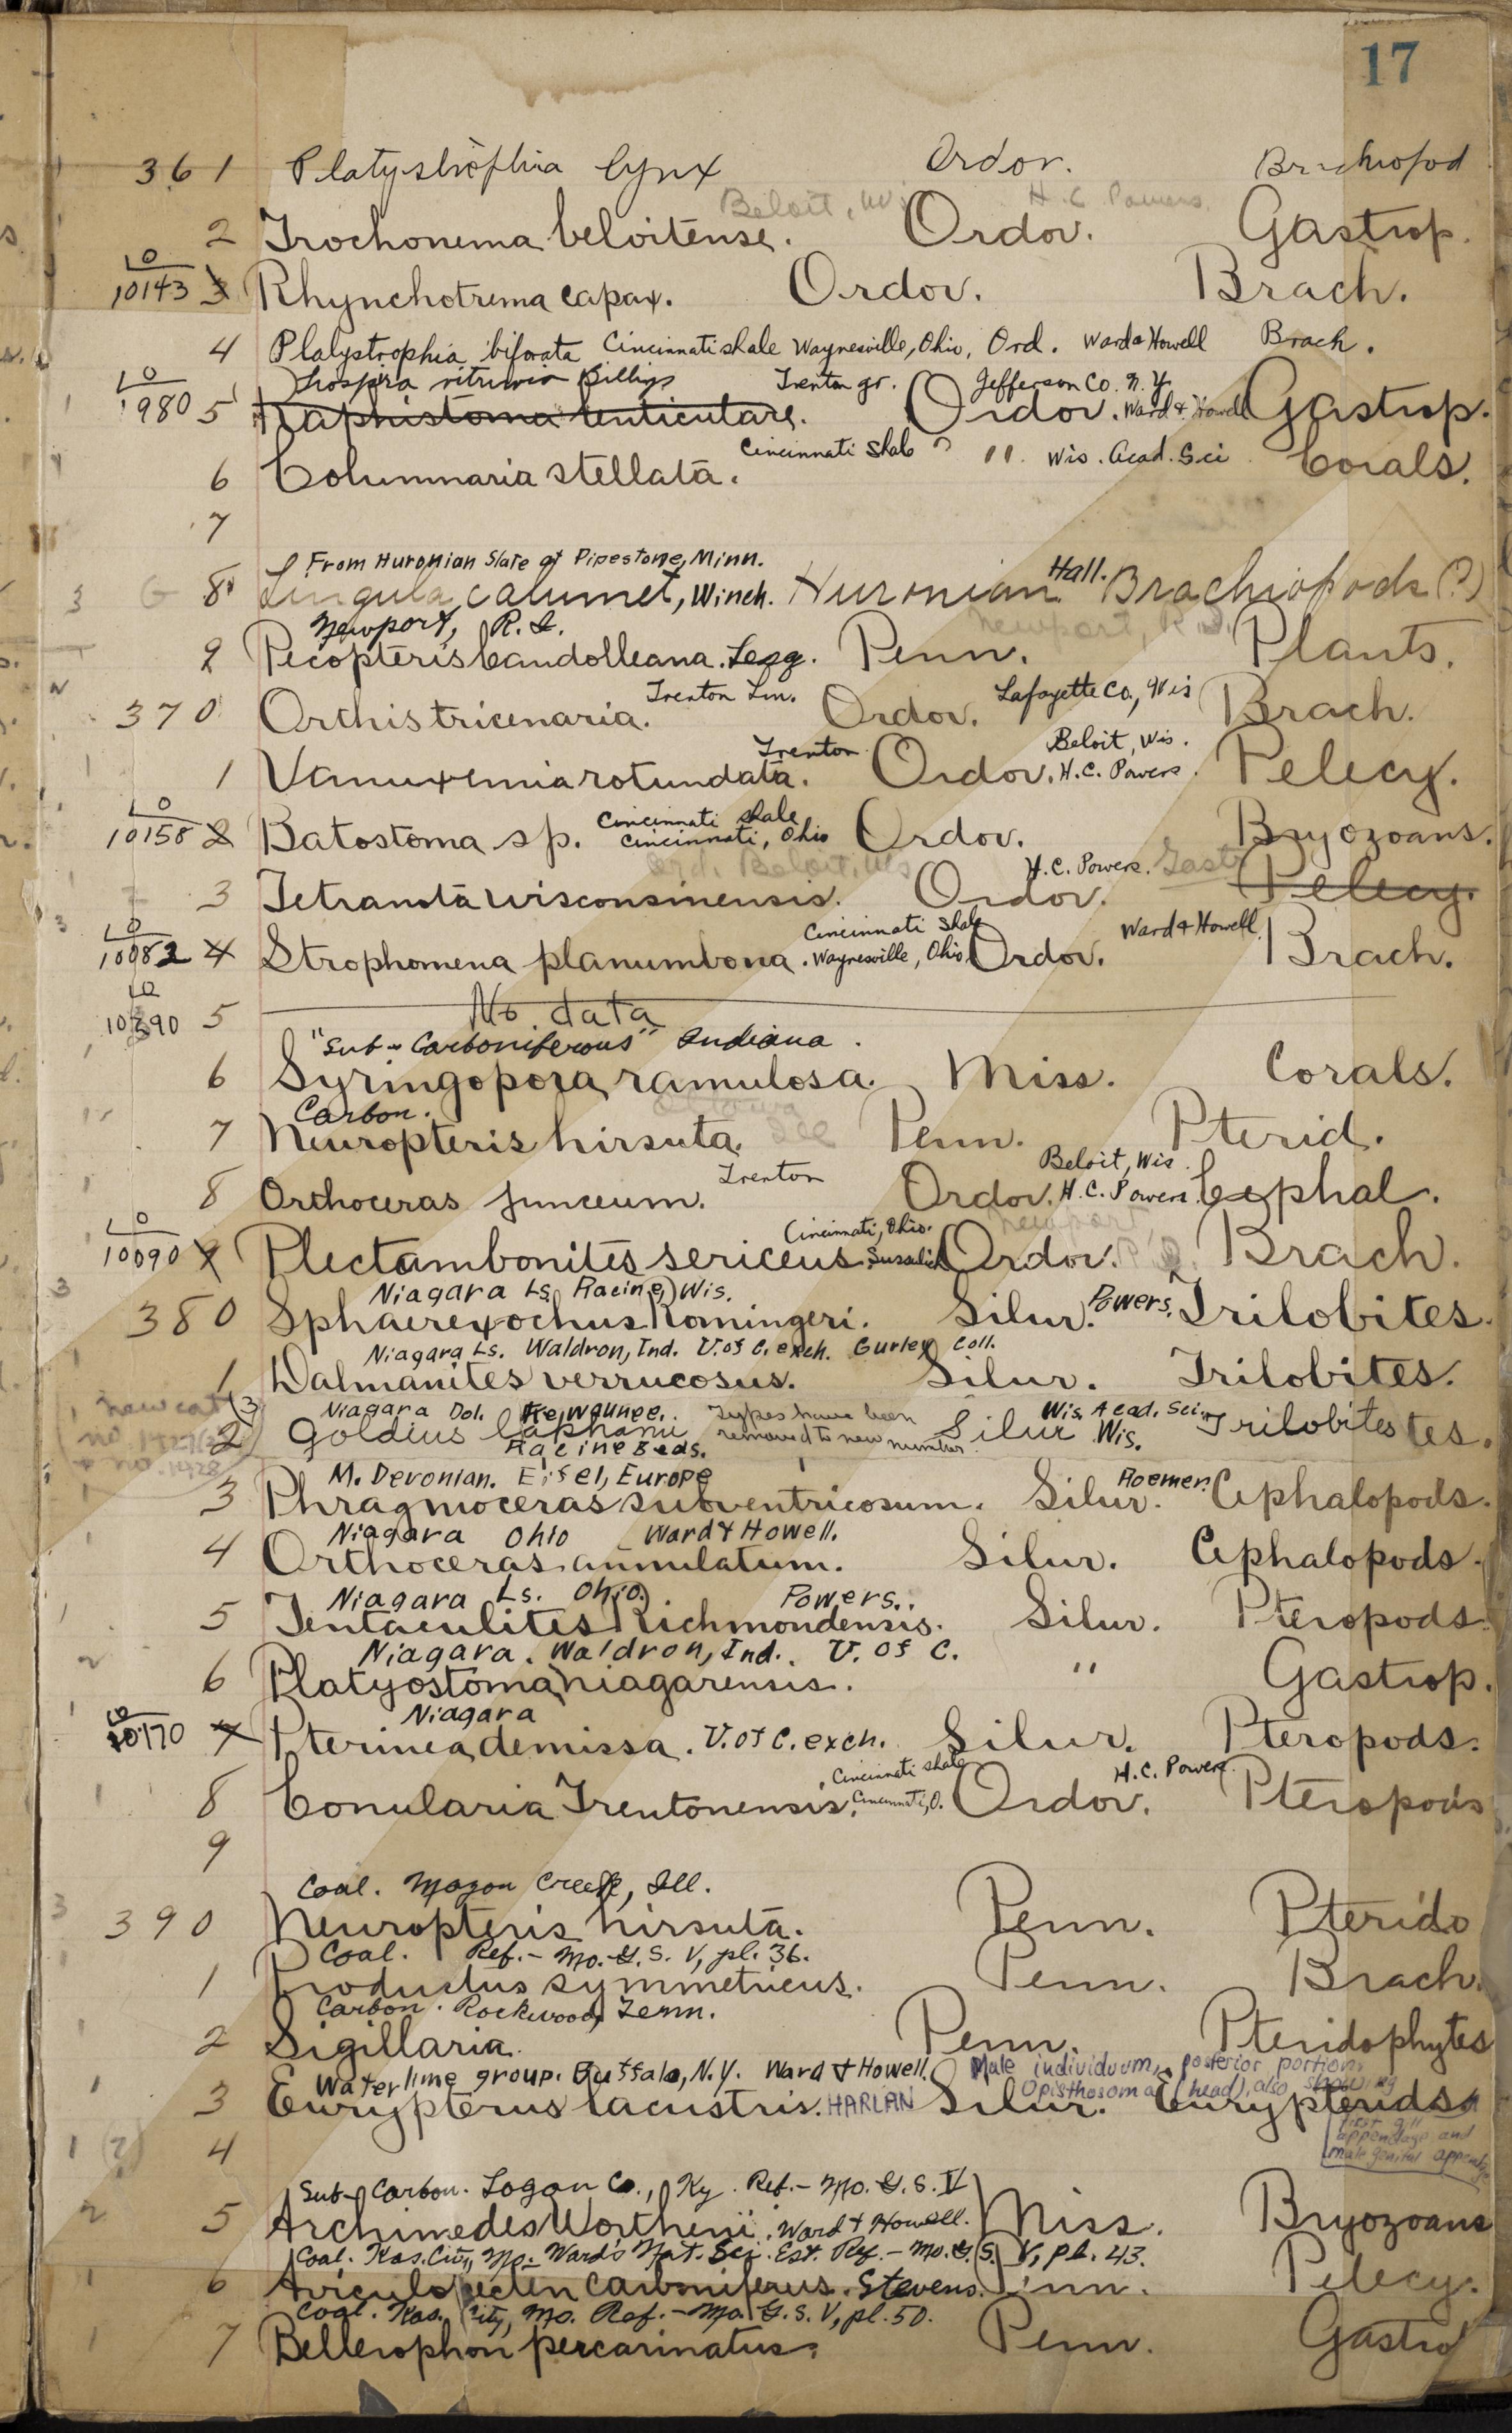 17
361 Platystrophia lynx Ordov. Brachiopod
Beloit, Wis H. C. Powers.
2 Trochonema beloitense. Ordov. Gastrop.
10143 3 Rhynchotrema capax. Ordov. Brach.
4 Platystrophia biforata Cincinnati shale Waynesville, Ohio, Ord. Ward & Howell Brach.
Billings Trenton gr. Jefferson Co. N.Y.
1980 5 Raphistoma lenticulare. Ordov. Ward & Howell Gastrop.
Cincinnati Shale " Wis. Acad. Sci
6 Columnaria stellata. Corals.
7
From Huronian Slate of Pipestone, Minn. Hall.
8 Lingula calumet, Winch. Huronian Brachiopods (?)
Newport, R. I. Newport, R. I.
9 Pecopteris Candolleana. Lesq. Penn. Plants.
Trenton Lm. Lafayette Co., Wis
370 Orthis tricenaria. Ordov. Brach.
Trenton Beloit, Wis.
1 Vanuxemia rotundata. Ordov. H.C. Powers. Pelecy.
Cincinnati shale
10158 2 Batostoma sp. Cincinnati, Ohio Ordov. Bryozoans.
Ord. Beloit, Wis H.C. Powers. Gast
3 Tetranota wisconsinensis. Ordov. Pelecy.
Cincinnati Shale Ward & Howell
10082 4 Strophomena planumbona. Waynesville, Ohio, Ordov. Brach.
10390 5 No data
"Sub-Carboniferous" Indiana.
6 Syringopora ramulosa. Miss. Corals.
Carbon. Ottawa Ill
7 Neuropteris hirsuta. Penn. Pterid.
Trenton Beloit, Wis.
8 Orthoceras junceum. Ordov. H.C. Powers. Cephal.
Cincinnati, Ohio. Newport, R. I.
10090 9 Plectambonites sericeus. Ordov. Brach.
Niagara Ls. Racine, Wis. Powers.
380 Sphaerexochus Romingeri. Silur. Trilobites.
Niagara Ls. Waldron, Ind. U. of C. exch. Gurley Coll.
1 Dalmanites verrucosus. Silur. Trilobites.
new cat
Niagara Dol. Kewaunee. Types have been Wis. Acad. Sci.
2 Goldius laphami removed to new number. Silur Wis. Trilobites
Racine Beds.
M. Devonian. Eifel, Europe Roemer.
3 Phragmoceras subventricosum. Silur. Cephalopods.
Niagara Ohio Ward & Howell.
4 Orthoceras annulatum. Silur. Cephalopods.
Niagara Ls. Ohio. Powers.
5 Tentaculites Richmondensis. Silur. Pteropods.
Niagara. Waldron, Ind. U. of C.
6 Platyostoma niagarensis. " Gastrop.
Niagara
10170 7 Pterinea demissa. U. of C. exch. Silur. Pteropods.
Cincinnati shale H.C. Powers.
8 Conularia Trentonensis. Cincinnati, O. Ordov. Pteropods
9
Coal. Mazon Creek, Ill.
390 Neuropteris hirsuta. Penn. Pterido
Coal. Ref.- Mo. G. S. V, pl. 36.
1 Productus symmetricus. Penn. Brach.
Carbon. Rockwood, Tenn.
2 Sigillaria. Penn. Pteridophytes
Waterlime group. Buffalo, N.Y. Ward & Howell. Male individuum, posterior portion,
Opisthosoma (head), also showing
3 Eurypterus lacustris. HARLAN Silur. Eurypterids
first gill
appendage and
male genital appendage
1 (?) 4
Sub-Carbon. Logan Co., Ky. Ref.- Mo. G. S. V
5 Archimedes Wortheni. Ward & Howell. Miss. Bryozoans
Coal. Kas. City, Mo. Ward's Nat. Sci. Est. Ref.- Mo. G. S. V, pl. 43.
6 Aviculopecten carboniferus. Stevens. Penn. Pelecy.
Coal. Kas. City, Mo. Ref.- Mo. G. S. V, pl. 50.
7 Bellerophon percarinatus. Penn. Gastro